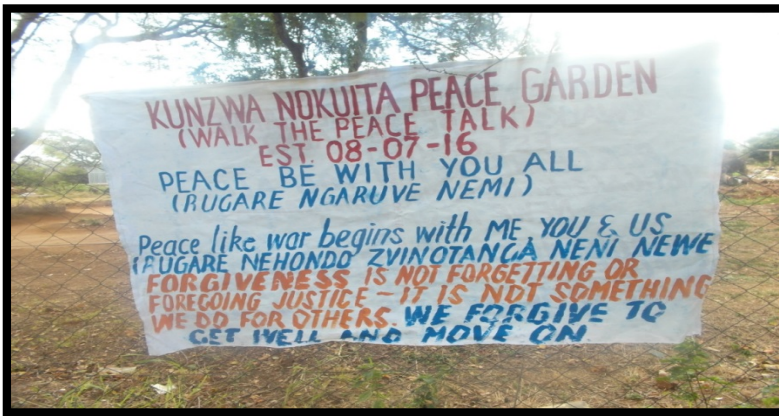 KUNZWA NOKUITA PEACE GARDEN
(WALK THE PEACE TALK)
EST. 08-07-16
PEACE BE WITH YOU ALL
(RUGARE NGARUVE NEMI)
Peace like war begins with ME, YOU & US
(RUGARE NEHONDO ZVINOTANGA NENI NEWE
FORGIVENESS IS NOT FORGETTING OR
FOREGOING JUSTICE - IT IS NOT SOMETHING
WE DO FOR OTHERS. WE FORGIVE TO
GET WELL AND MOVE ON.